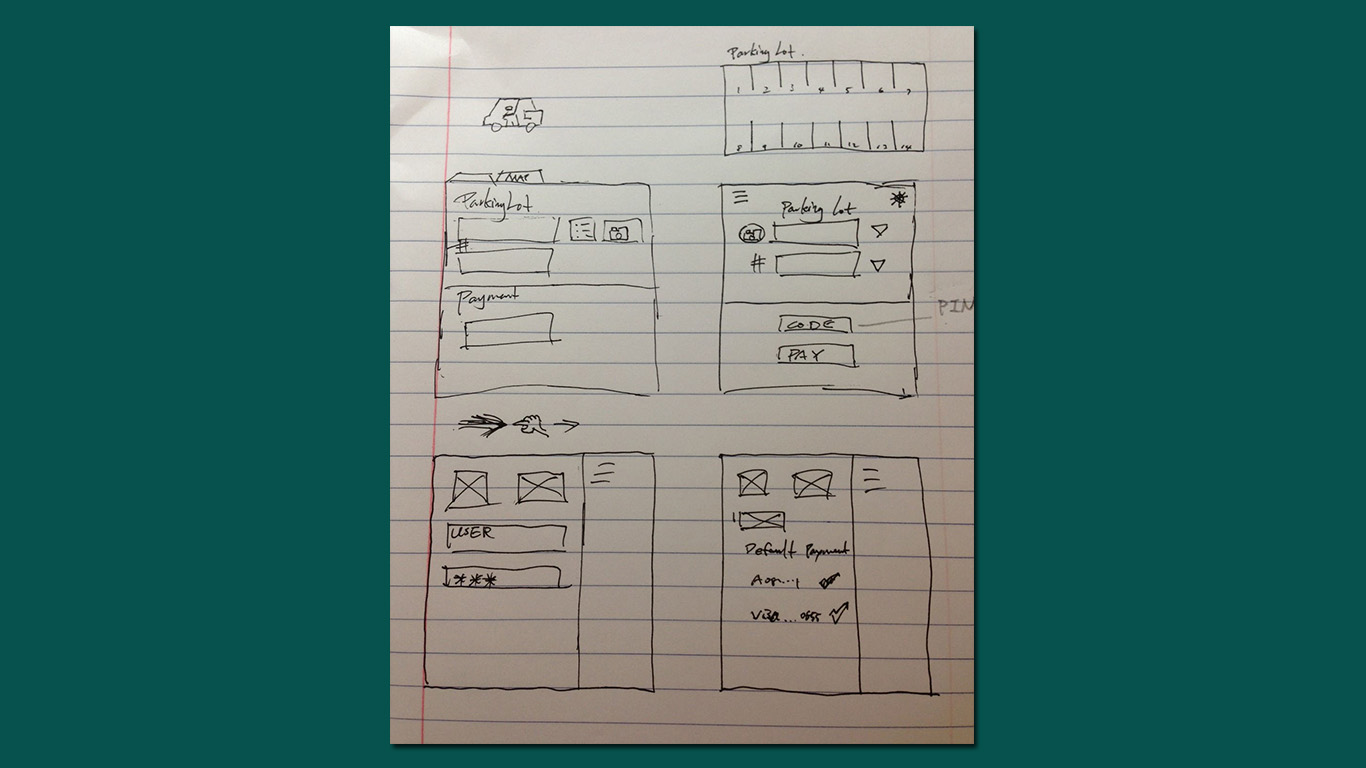 Parking Lot.
1 2 3 4 5 6 7
8 9 10 11 12 13 14
Parking Lot
#
Payment
Parking Lot
#
CODE
PIN
PAY
USER
***
Default Payment
Visa...0655